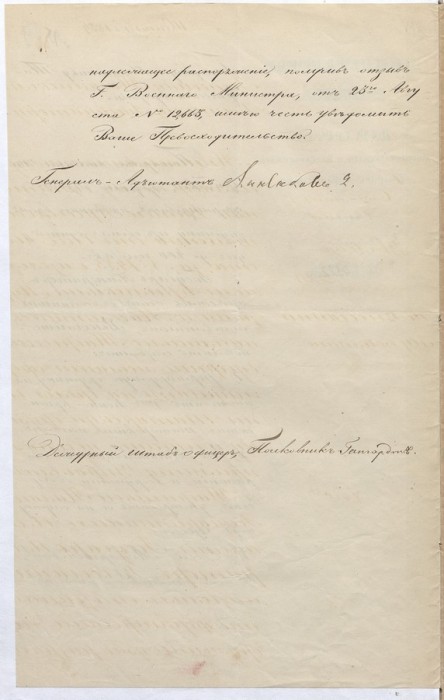 надлежащее распоряженіе, получивъ отзывъ
Г. Военнаго Министра, отъ 25го Авгу
ста № 12663, имѣю честь увѣдомить
Ваше Превосходительство.
Генералъ-Адъютантъ Анненковъ 2.
Дежурный штабъ-офицеръ, Полковникъ